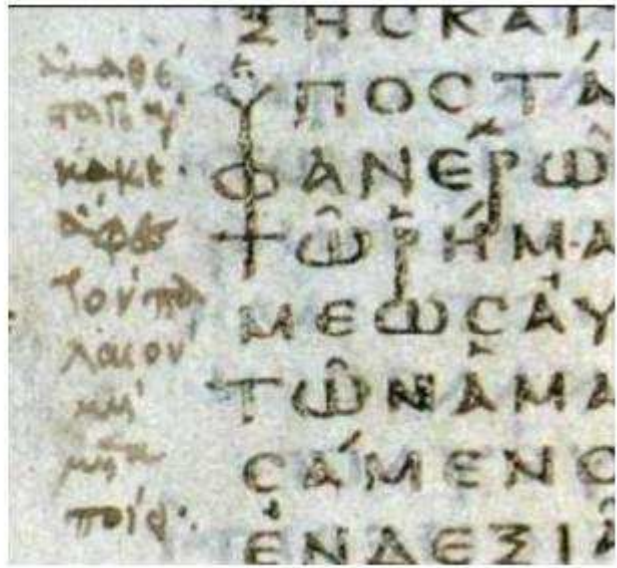 ἀμαθέσ
τατε καὶ
κακέ·
ἄφες
τὸν πα
λαιόν
μὴ
μετα
ποίει·
ΞΗϹΚΑΙ
ΫΠΟϹΤΆ
ΦΑΝΕΡῶ
ΤῶΡΉΜΑ
ΜΕΩϹΑΥ
ΤῶΝἉΜΑ
ϹΆΜΕΝΟ
ἘΝΔΕΞΙᾶ